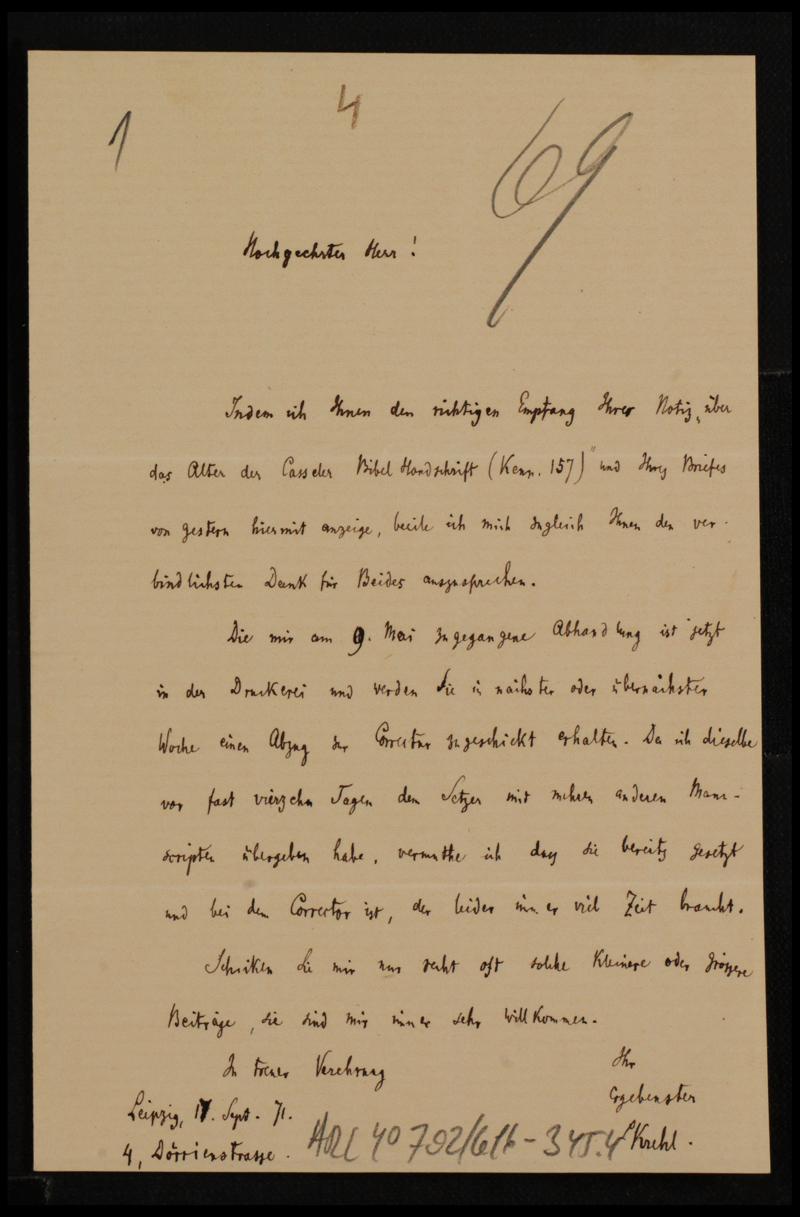 1
4
69
Hochgeehrter Herr!
Indem ich Ihnen den richtigen Empfang Ihrer Notiz „über
das Alter der Casseler Bibel Handschrift (Kenn. 157)" und Ihres Briefes
von gestern hiermit anzeige, beeile ich mich zugleich Ihnen den ver-
bindlichsten Dank für Beides auszusprechen.
Die mir am 9. Mai zugegangene Abhandlung ist jetzt
in der Druckerei und werden Sie in nächster oder übernächster
Woche einen Abzug zur Correctur zugeschickt erhalten. Da ich dieselbe
vor fast vierzehn Tagen dem Setzer mit mehren anderen Manu-
scripten übergeben habe, vermuthe ich dass sie bereits gesetzt
und bei dem Corrector ist, der leider immer viel Zeit braucht.
Schicken Sie mir nur recht oft solche kleinere oder grössere
Beiträge, sie sind mir immer sehr willkommen.
In treuer Verehrung
Ihr
ergebenster
Krehl.
Leipzig, 17. Sept. 71.
4, Dörrienstrasse.